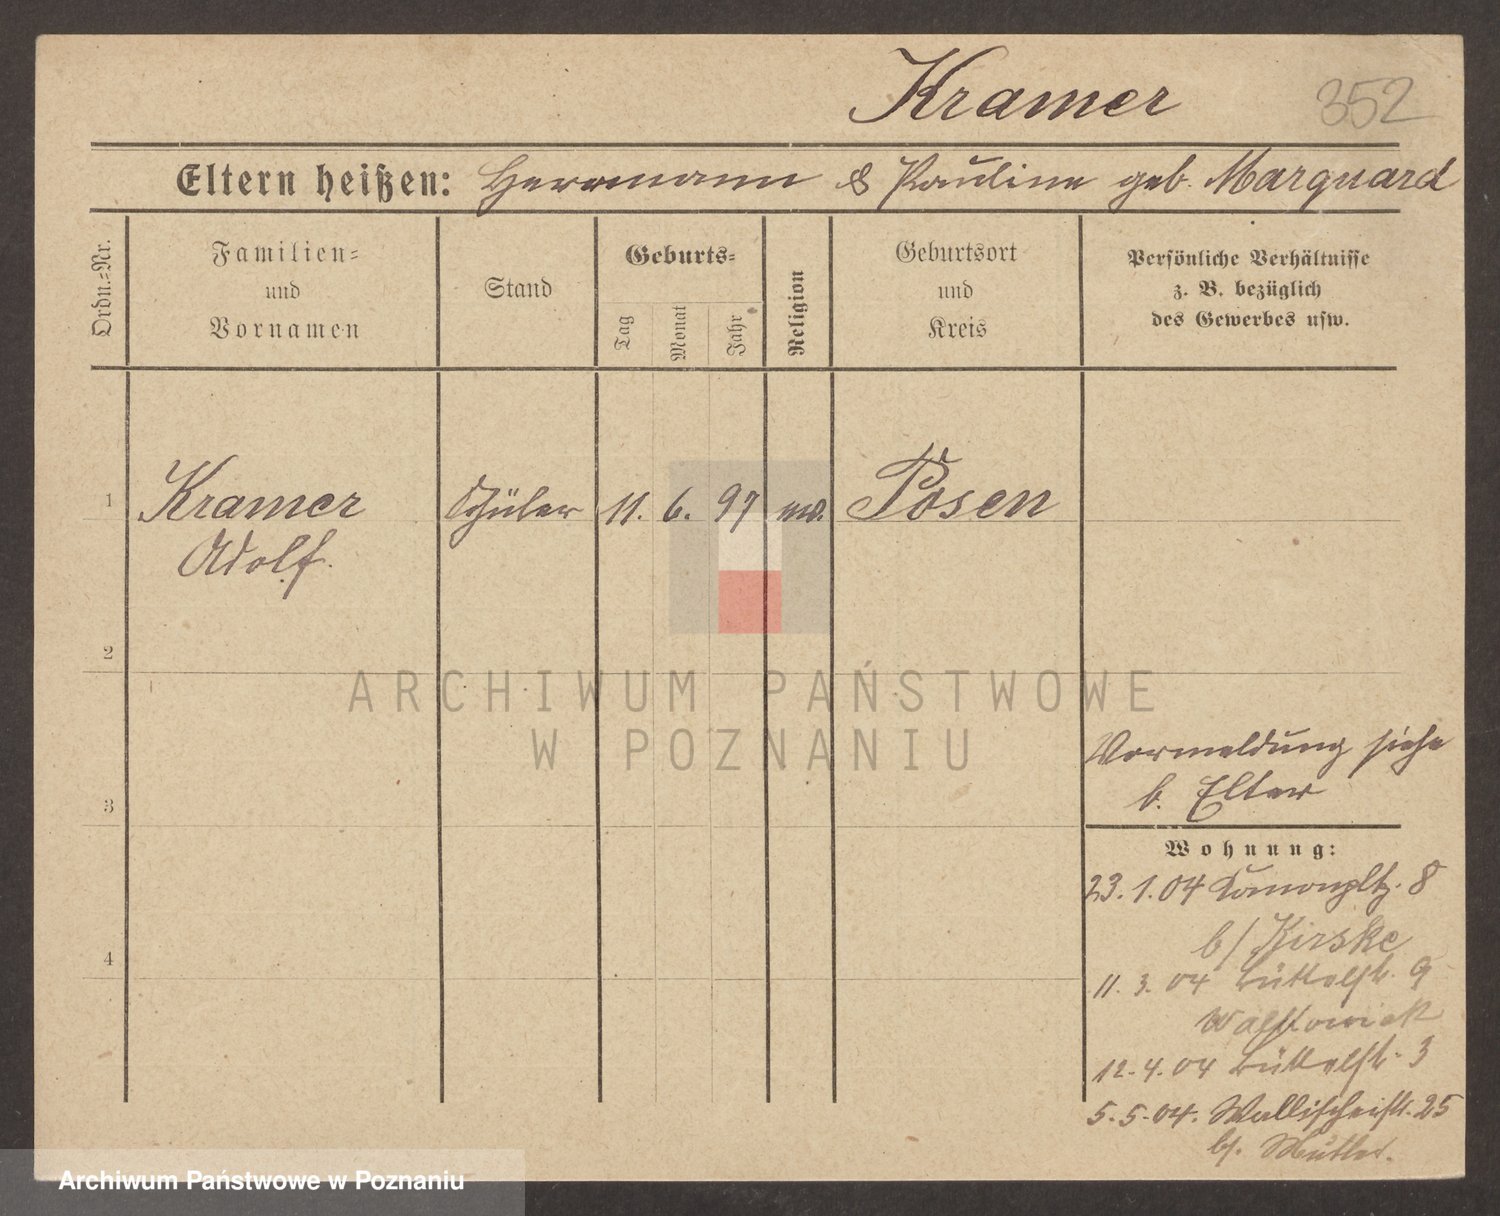 Kramer
352
Eltern heißen: Herrmann & Pauline geb. Marquard
Ordn.-Nr.
Familien-
und
Vornamen
Stand
Geburts-
Tag
Monat
Jahr
Religion
Geburtsort
und
Kreis
Persönliche Verhältnisse
z. B. bezüglich
des Gewerbes usw.
1
Kramer
Adolf.
Schüler
11. 6. 97
ev.
Posen
2
ARCHIWUM PAŃSTWOWE
W POZNANIU
Vormeldung siehe
b. Elter
3
Wohnung:
23. 1. 04 Kanonpltz. 8
b/ Kirske
4
11. 3. 04 Büttelstr. 9
12. 4. 04 Büttelstr. 3
5. 5. 04. Wallischeistr. 25
b/. Mutter.
Archiwum Państwowe w Poznaniu